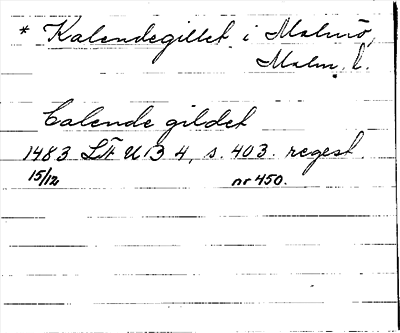 * Kalendegillet i Malmö,
Malm. l.
Calende gildet
1483 LÆUB 4, s. 403. regest.
15/12 nr 450.